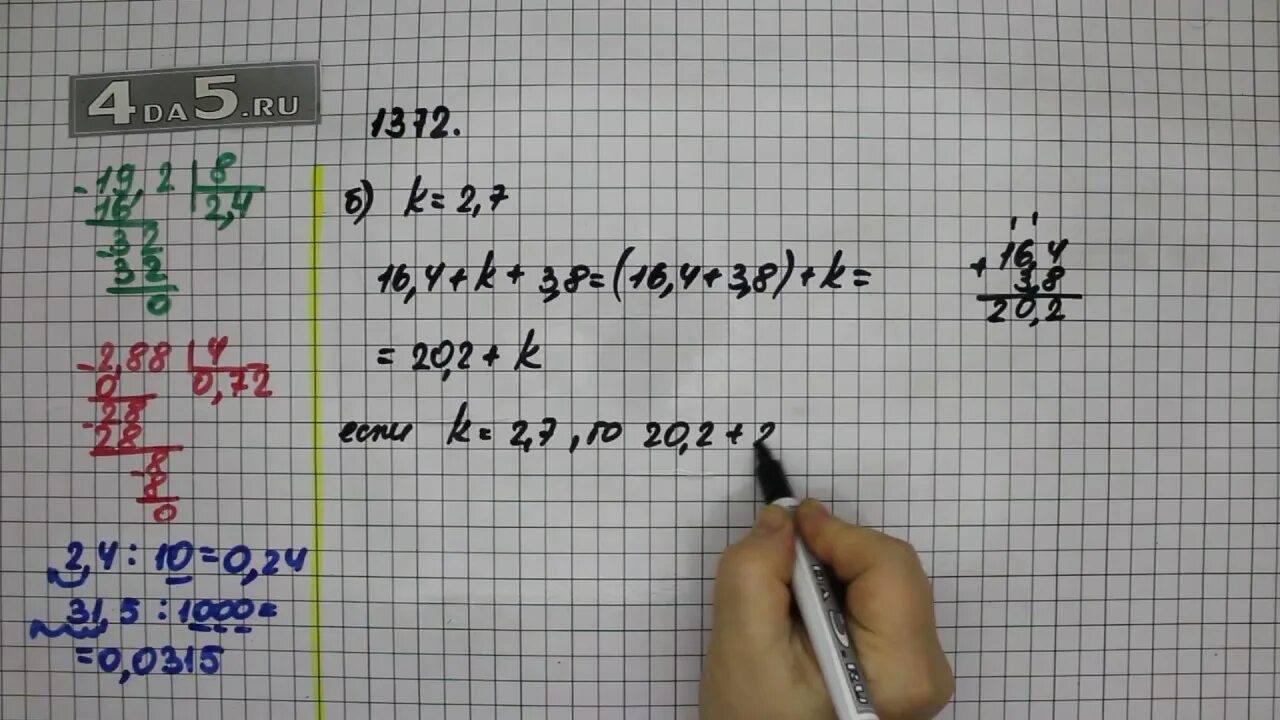 4DA5.RU
1372.
б) k = 2,7
16,4 + k + 3,8 = (16,4 + 3,8) + k =
= 20,2 + k
если k = 2,7, то 20,2 + 2
+ 16,4
3,8
20,2
- 19,2 | 8
16 2,4
- 32
32
0
- 2,88 | 4
0 0,72
- 28
28
- 8
8
0
2,4 : 10 = 0,24
31,5 : 1000 =
= 0,0315
DA5.RU